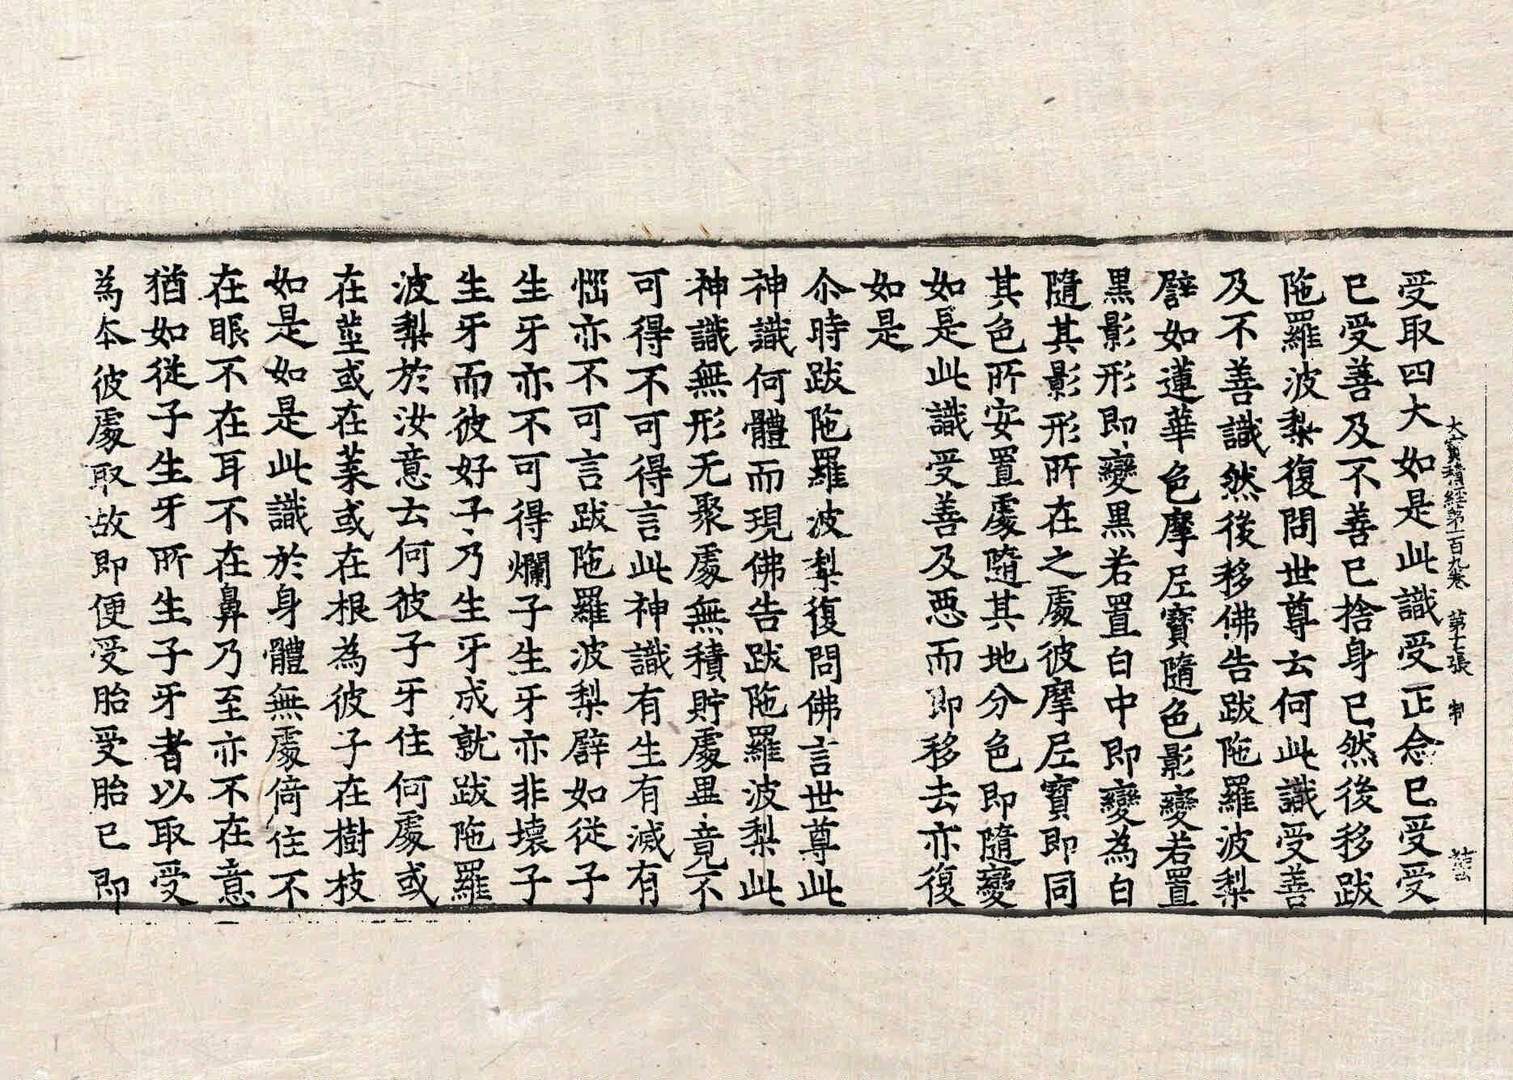 大寶積經第一百九卷 第十七張 制
受取四大如是此識受正念已受受
已受善及不善已捨身已然後移跋
陁羅波梨復問世尊云何此識受善
及不善識然後移佛告跋陁羅波梨
譬如蓮華色摩尼寶隨色影變若置
黒影形即變黒若置白中即變為白
隨其影形所在之處彼摩尼寶即同
其色所安置處隨其地分色即隨變
如是此識受善及惡而即移去亦復
如是
尒時跋陁羅波梨復問佛言世尊此
神識何體而現佛告跋陁羅波梨此
神識無形无聚處無積貯處畢竟不
可得不可得言此神識有生有滅有
惱亦不可言跋陁羅波梨辟如從子
生牙亦不可得爛子生牙亦非壞子
生牙而彼好子乃生牙成就跋陁羅
波梨於汝意云何彼子牙住何處或
在莖或在葉或在根為彼子在樹枝
如是如是此識於身體無處倚住不
在眼不在耳不在鼻乃至亦不在意
猶如從子生牙所生子牙者以取受
為本彼處取故即便受胎受胎已即